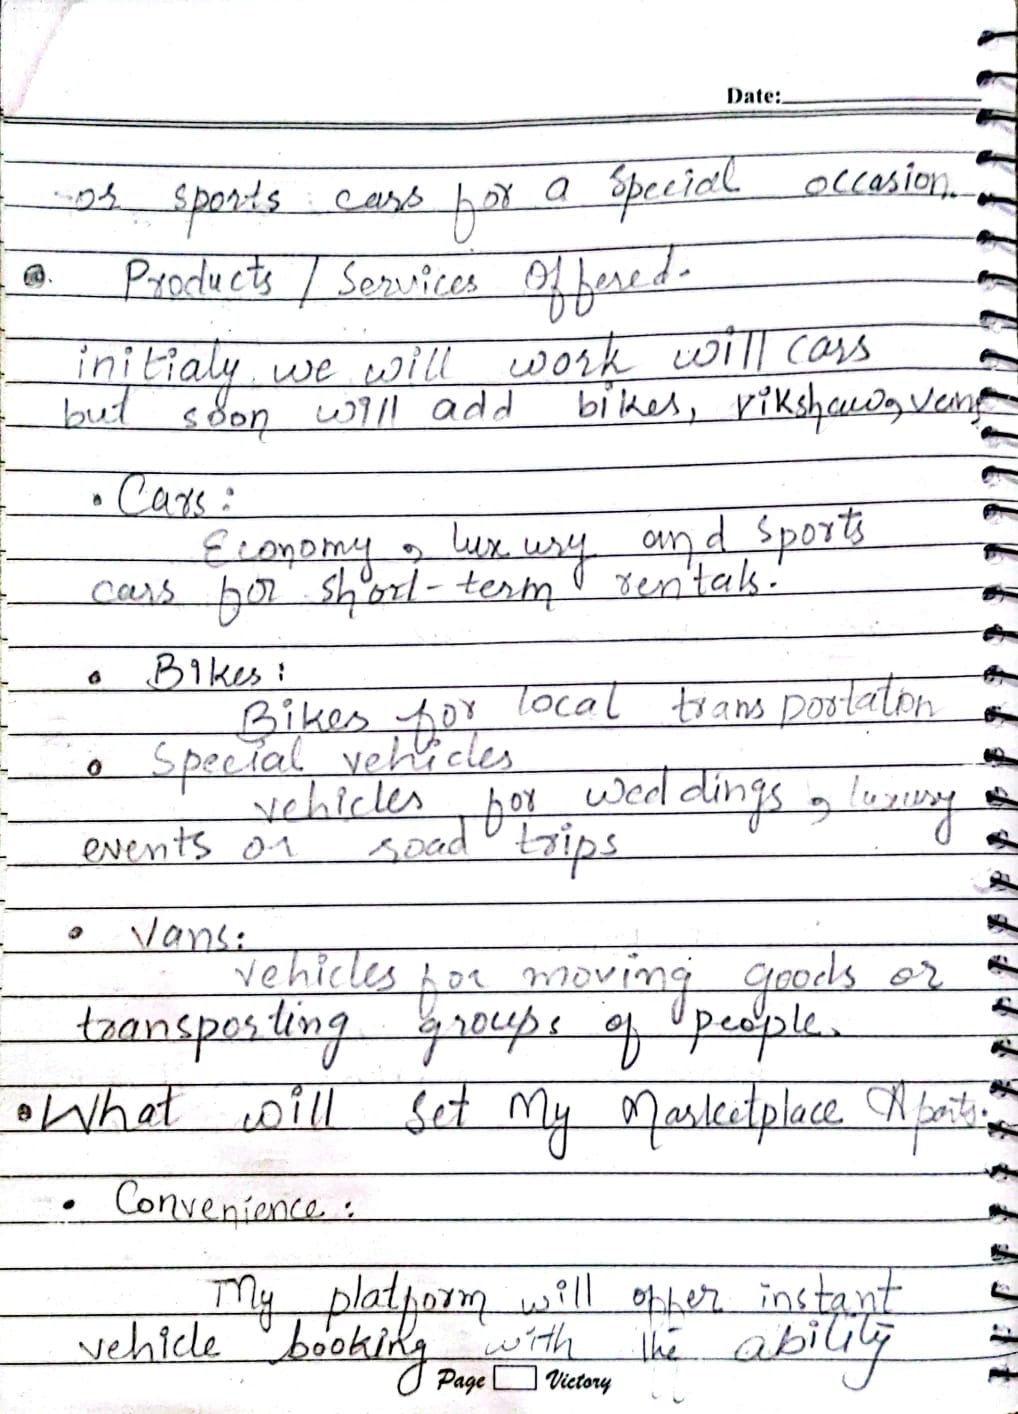 Date:
or sports cars for a special occasion.
Products / Services Offered-
initialy we will work will cars
but soon will add bikes, rikshaw, vans
• Cars:
Economy, luxury and sports
cars for short-term rentals.
• Bikes:
Bikes for local transportaton
• Special vehicles
vehicles for weddings, luxury
events or road trips
• Vans:
vehicles for moving goods or
transporting groups of people.
• What will Set My Marketplace Apart.
• Convenience:
My platform will offer instant
vehicle booking with the ability
Page Victory